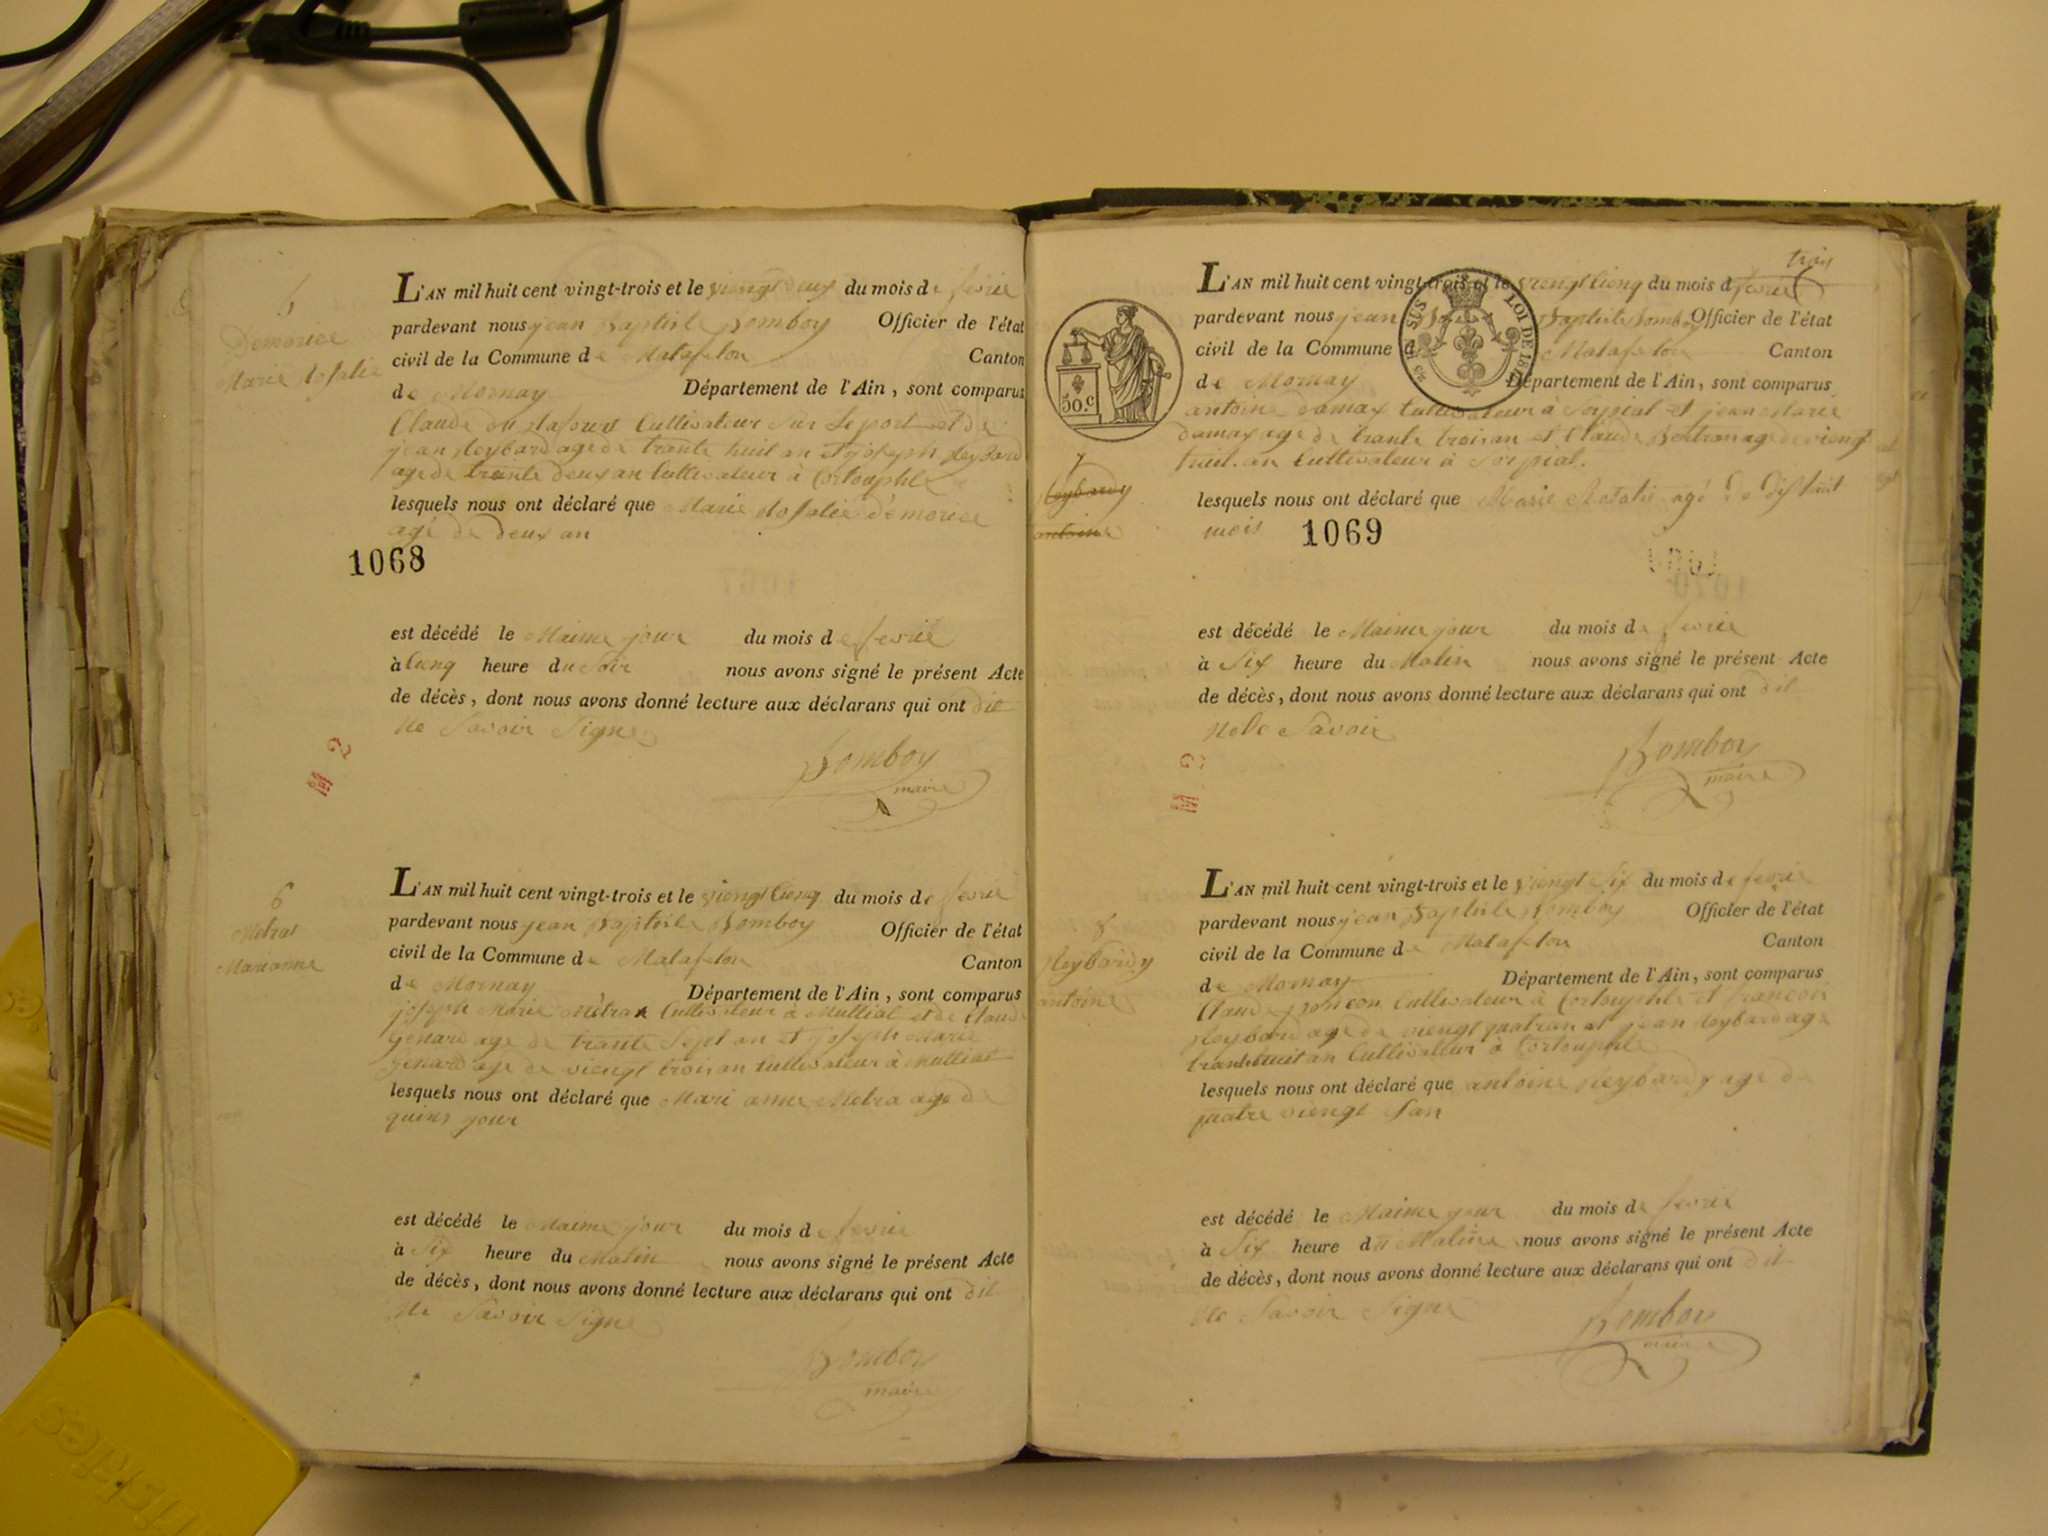 5
Demorice
Marie Rosalie
L'AN mil huit cent vingt-trois et le viengt deux du mois de fevrie
pardevant nous jean Baptiste Bomboy Officier de l'état
civil de la Commune de Matafelon Canton
de Mornay Département de l'Ain, sont comparus
Claude Cultivateur Sur Le port et de
jean Reybard age de trante huit an et joseph Reybard
age de trante deux an Cultivateur à Cortouphle
lesquels nous ont déclaré que Marie Rosalie demorice
agé de deux an
1068
est décédé le Maime jour du mois de fevrié
à Cinq heure du Soir nous avons signé le présent Acte
de décès, dont nous avons donné lecture aux déclarans qui ont dit
Ne Savoir Signe
Bomboy
maire
6
Metras
Marianne
L'AN mil huit cent vingt-trois et le viengt Cienq du mois de fevrie
pardevant nous jean Baptiste Bomboy Officier de l'état
civil de la Commune de Matafelon Canton
de Mornay Département de l'Ain, sont comparus
joseph Marie Métra Cultivateur à Mulliat et de Claude
Genard age de trante Sept an et joseph Marie
genard age de viengt troisan Cultivateur à Mulliat
lesquels nous ont déclaré que Mari anne Metra age de
quins jour
est décédé le Maime jour du mois de fevrie
à Six heure du Matin nous avons signé le présent Acte
de décès, dont nous avons donné lecture aux déclarans qui ont dit
Ne Savoir Signe
Bomboy
maire
trois
L'AN mil huit cent vingt-trois et le viengt Cienq du mois de fevrié
pardevant nous jean Baptiste Bomboy Officier de l'état
civil de la Commune de Matafelon Canton
de Mornay Département de l'Ain, sont comparus
antoine damax Cultivateur à Sorpiat et jean Marie
damax age de trante troisan et Claude age de viengt
huit an Cultivateur à Sorpiat.
50.c
LOI DE 1816
7
Reybardy
antoine
lesquels nous ont déclaré que Marie agé de dishuit
mois
1069
est décédé le Maime jour du mois de fevrie
à Six heure du Matin nous avons signé le présent Acte
de décès, dont nous avons donné lecture aux déclarans qui ont dit
Nele Savoir
Bomboy
maire
8
Reybardy
antoine
L'AN mil huit cent vingt-trois et le viengt Six du mois de fevrie
pardevant nous jean Baptiste Bomboy Officier de l'état
civil de la Commune de Matafelon Canton
de Mornay Département de l'Ain, sont comparus
Claude poncon Cultivateur à Cortouphle et francois
Reybard age de viengt quatran et jean Reybard age
trantehuit an Cultivateur à Cortouphle
lesquels nous ont déclaré que antoine Reybardy age de
quatre viengt
est décédé le Maime jour du mois de fevrie
à Six heure du Matin nous avons signé le présent Acte
de décès, dont nous avons donné lecture aux déclarans qui ont dit
Ne Savoir Signe
Bomboy
maire